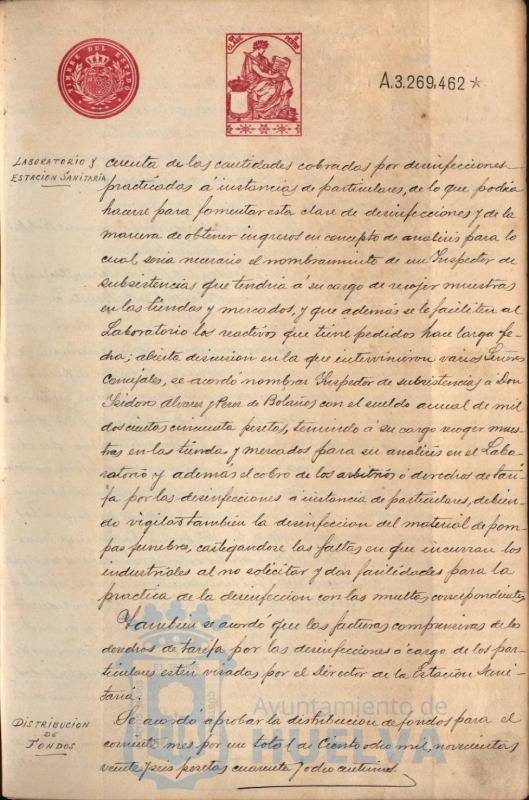 TIMBRE DEL ESTADO
A.3.269.462
LABORATORIO Y
ESTACION SANITARIA
cuenta de las cantidades cobradas por desinfecciones
practicadas á instancias de particulares, de lo que podria
hacerse para fomentar esta clase de desinfecciones y de la
manera de obtener ingresos en concepto de analisis para lo
cual, seria necesario el nombramiento de un Inspector de
subsistencias que tendria á su cargo de recojer muestras
en las tiendas y mercados, y que además se le faciliten al
Laboratorio los reactivos que tiene pedidos hace larga fe-
cha; abierta discusion en la que intervinieron varios Señores
Concejales, se acordó nombrar Inspector de subsistencias á Don
Isidoro Alvarez y Perez de Bolaños con el sueldo anual de mil
doscientas cincuenta pesetas, teniendo á su cargo recoger mues-
tras en las tiendas y mercados para su analisis en el Labo-
ratorio y además el cobro de los arbitrios ó derechos de tari-
fa por las desinfecciones á instancia de particulares, debien-
do vigilar tambien la desinfeccion del material de pom-
pas funebres, castigandose las faltas en que incurran los
industriales al no solicitar y dar facilidades para la
practica de la desinfeccion con las multas correspondientes
Tambien se acordó que las facturas comprensivas de los
derechos de tarifa por las desinfecciones á cargo de los par-
ticulares estén visadas por el Director de la Estación Sani-
taria.
DISTRIBUCION
DE
FONDOS
Se acordó aprobar la distribucion de fondos para el
corriente mes por un total de Ciento ocho mil, novecientas
veinte y tres pesetas cuarenta y ocho centimos.
Ayuntamiento de
HUELVA